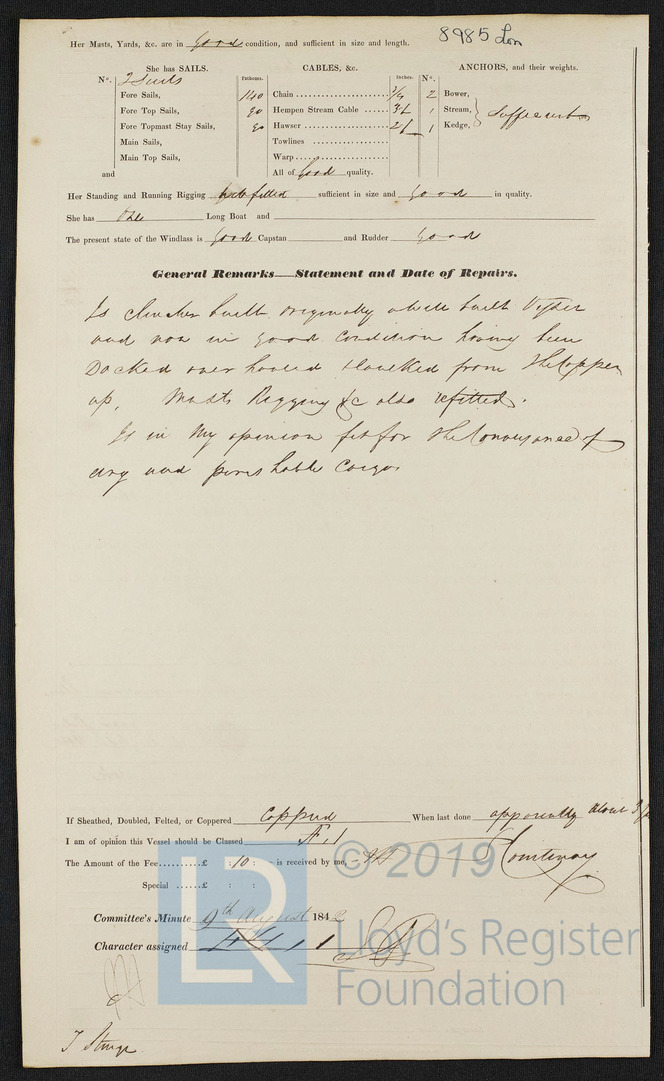 8985 Lon
Her Masts, Yards, &c. are in Good condition, and sufficient in size and length.
She has SAILS.
CABLES, &c.
ANCHORS, and their weights.
No.
2 Suits
Fathoms.
Inches.
No.
Fore Sails,
Chain
2
Bower,
Fore Top Sails,
90
Hempen Stream Cable
1
Stream,
Sufficient
Fore Topmast Stay Sails,
90
Hawser
1
Kedge,
Main Sails,
Towlines
Main Top Sails,
Warp
and
All of Good quality.
Her Standing and Running Rigging fitted sufficient in size and Good in quality.
She has One Long Boat and
The present state of the Windlass is Good Capstan and Rudder Good
General Remarks—Statement and Date of Repairs.
Is Clincher built originally a built
and now in Good Condition having been
Docked over hauled from the Copper
up, Masts Rigging &c also refitted.
Is in My opinion fit for the Conveyance of
dry and perishable Cargo
If Sheathed, Doubled, Felted, or Coppered Coppered When last done apparently about 3
I am of opinion this Vessel should be Classed
The Amount of the Fee £ : 10 : - is received by me, Courtenay
Special £ : :
Committee's Minute 9th August 1842
Character assigned
T Sturge
© 2019
LR
Lloyd's Register
Foundation